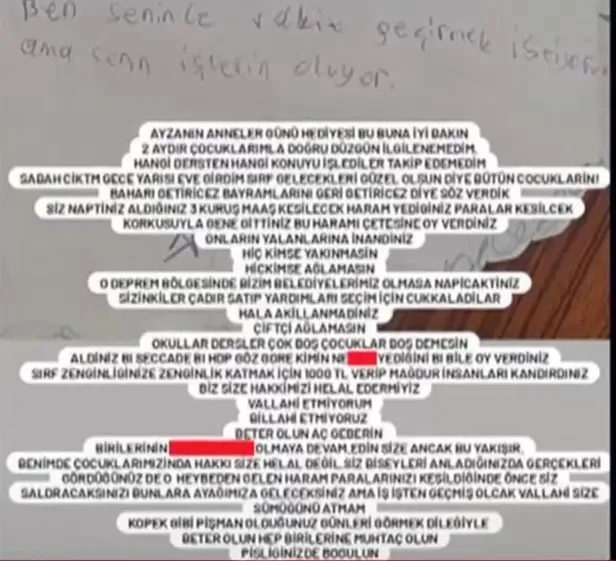 Ben seninle vakit geçirmek istiyorum
ama senin işlerin oluyor.
AYZANIN ANNELER GÜNÜ HEDİYESİ BU BUNA İYİ BAKIN
2 AYDIR ÇOCUKLARIMLA DOĞRU DÜZGÜN İLGİLENEMEDİM.
HANGİ DERSTEN HANGİ KONUYU İŞLEDİLER TAKİP EDEMEDİM
SABAH CIKTM GECE YARISI EVE GİRDİM SIRF GELECEKLERİ GÜZEL OLSUN DİYE BÜTÜN COCUKLARIN!
BAHARI GETİRİCEZ BAYRAMLARINI GERİ GETİRİCEZ DİYE SÖZ VERDİK
SİZ NAPTINIZ ALDIĞINIZ 3 KURUŞ MAAŞ KESİLECEK HARAM YEDİGİNİZ PARALAR KESİLCEK
KORKUSUYLA GENE GİTTİNİZ BU HARAMİ ÇETESİNE OY VERDİNİZ
ONLARIN YALANLARINA İNANDINIZ
HİÇ KİMSE YAKINMASIN
HİCKİMSE AĞLAMASIN
O DEPREM BÖLGESİNDE BİZİM BELEDİYELERİMİZ OLMASA NAPICAKTINIZ
SİZİNKİLER ÇADIR SATIP YARDIMLARI SEÇİM İÇİN CUKKALADILAR
HALA AKILLANMADINIZ
ÇİFTÇİ AĞLAMASIN
OKULLAR DERSLER ÇOK BOŞ ÇOCUKLAR BOŞ DEMESİN
ALDINIZ BI SECCADE BI HDP GÖZ GÖRE KİMİN NE YEDİĞİNİ BI BİLE OY VERDİNİZ
SIRF ZENGİNLİGİNİZE ZENGİNLİK KATMAK İÇİN 1000 TL VERİP MAĞDUR İNSANLARI KANDIRDINIZ
BİZ SİZE HAKKIMIZI HELAL EDERMİYİZ
VALLAHİ ETMİYORUM
BİLLAHİ ETMİYORUZ
BETER OLUN AÇ GEBERİN
BİRİLERİNİN OLMAYA DEVAM EDİN SİZE ANCAK BU YAKIŞIR.
BENİMDE ÇOCUKLARIMIZINDA HAKKI SİZE HELAL DEĞİL SİZ BİSEYLERİ ANLADIĞINIZDA GERÇEKLERİ
GÖRDÜĞÜNÜZ DE O HEYBEDEN GELEN HARAM PARALARINIZI KESİLDİĞİNDE ÖNCE SİZ
SALDRACAKSINIZI BUNLARA AYAĞIMIZA GELECEKSİNİZ AMA İŞ İŞTEN GEÇMİŞ OLCAK VALLAHİ SİZE
SÜMÜĞÜNÜ ATMAM
KOPEK GİBİ PİŞMAN OLDUĞUNUZ GÜNLERİ GÖRMEK DİLEĞİYLE
BETER OLUN HEP BİRİLERİNE MUHTAÇ OLUN
PİSLİGİNİZDE BOGULUN